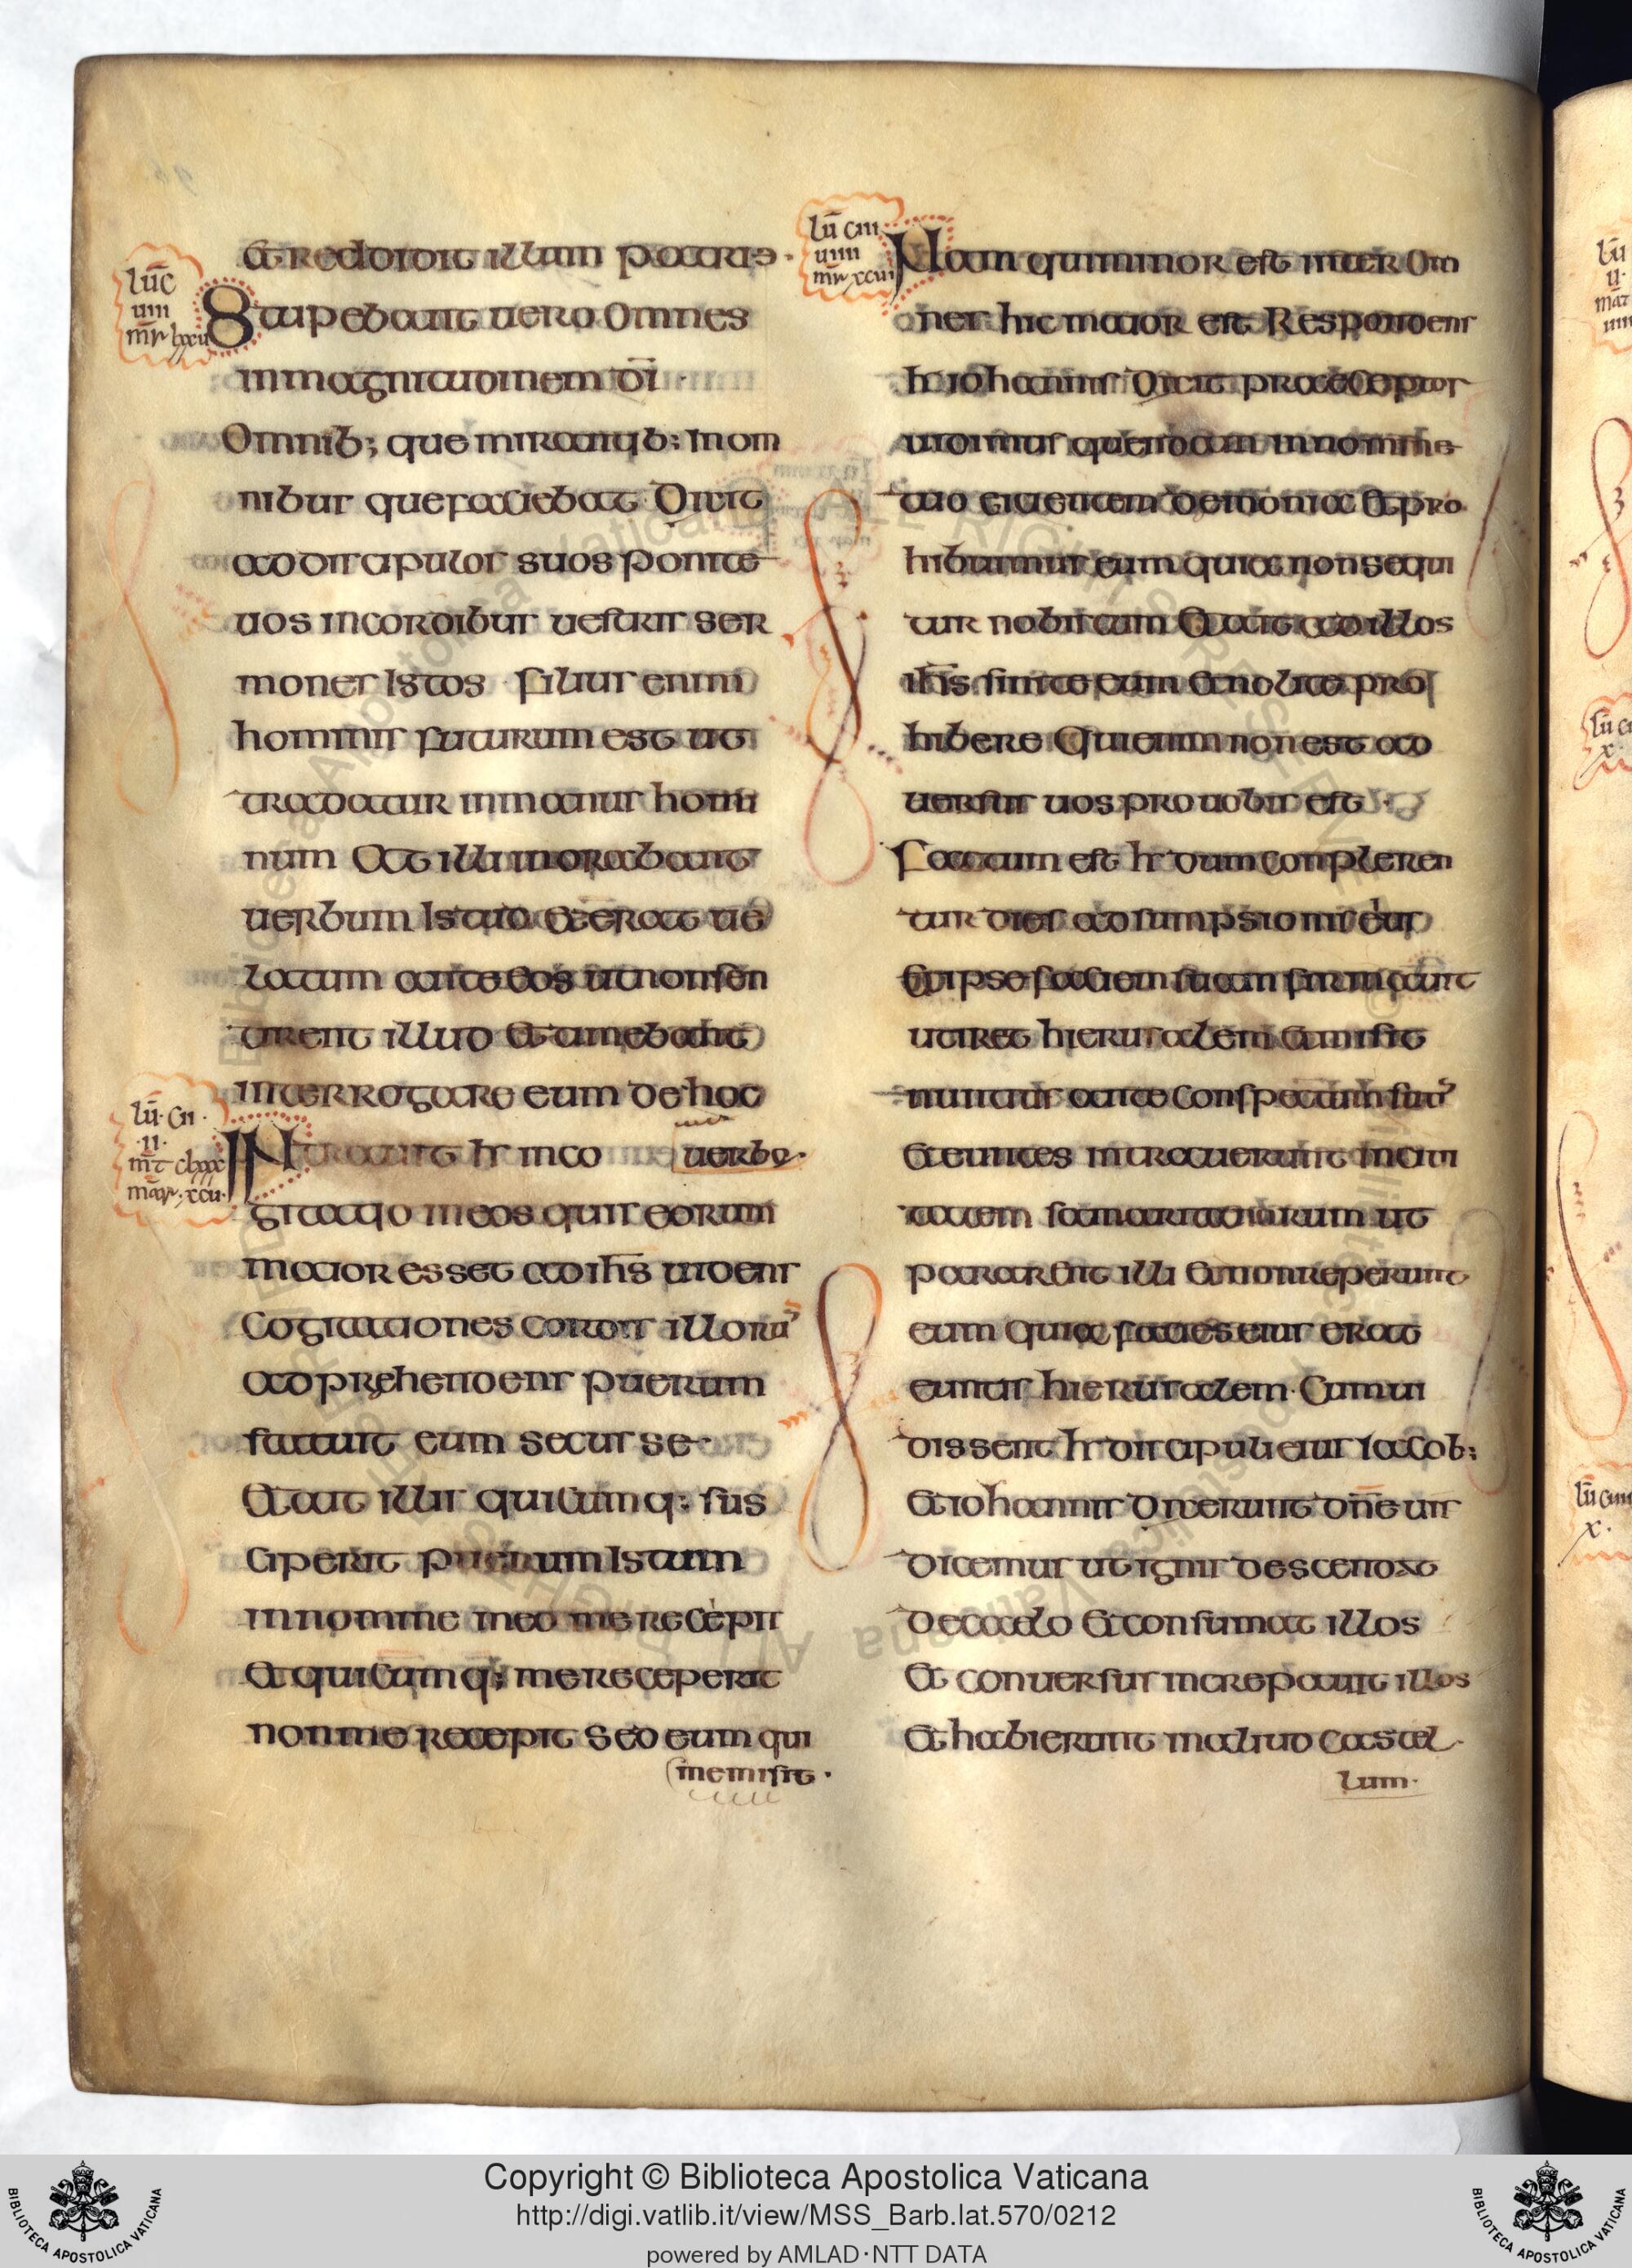 lūc
uiii
mr̄ lxxxu
Et reddidit illum patri ·
Stupebant uero omnes
in magnitudinem dī ·
Omnib; que mirantib; In om
nibus que faciebat Dixit
ad discipulos suos ponite
uos in cordibus uestris ser
mones Istos · filius enim
hominis futurum est ut
tradatur in manus homi
num At illi ignorabant
uerbum Istud et erat ue
latum ante eos ut non sen
tirent illud Et timebant
interrogare eum de hoc
uerbo ·
lū · cii ·
·ii·
mt̄ clxxx
mar̄ · xcu ·
INtrauit hr in co
gitatio in eos quis eorum
maior esset ad ih̄s uidens
Cogitationes cordis illorū
adprehendens puerum
statuit eum secus se ·
Et ait illis quicumq; sus
ciperit puerum Istum
in nomine meo me recepit
Et quicumq; me receperit
non me recepit Sed eum qui
me misit ·
lū ciii
uiii
mr̄ xcuii
Nam qui minor est inter om
nes hic maior est Respondens
hr iohannis Dixit praeceptor
uidimus quendam in nomine
tuo eicientem demonia Et pro
hibuimus eum quia non sequi
tur nobiscum Et ait ad illos
ih̄s sinite eum et nolite pro
hibere Qui enim non est ad
uersus uos pro uobis est ·
Factum est hr dum conpleren
tur dies adsumpsionis eius
Et ipse faciem suam firmauit
ut iret hierusalem et misit
nuntius ante conspectum suū
Et euntes intrauerunt in ciui
tatem samaritanorum ut
pararent illi Et non reperunt
eum quia facies eius erat
euntis hierusalem · Cum ui
dissent hr discipuli eius Iacob;
Et iohannis Dixerunt dn̄e uis
dicemus ut ignis descendat
de caelo Et consumat illos
Et conuersus increpauit illos
Et habierunt in aliud castel
lum ·
Copyright © Biblioteca Apostolica Vaticana
http://digi.vatlib.it/view/MSS_Barb.lat.570/0212
powered by AMLAD·NTT DATA
BIBLIOTECA APOSTOLICA VATICANA
BIBLIOTECA APOSTOLICA VATICANA